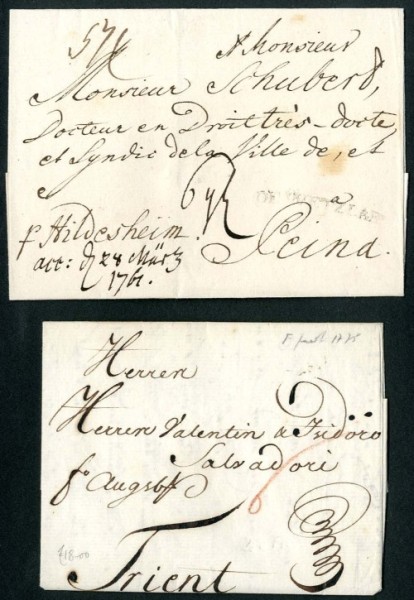 A Monsieur
Monsieur Schubert,
Docteur en Droit très-docte
et Syndic de la Ville de, et
a
Peina.
DE WETZLAR
p Hildesheim.
act: d 28 März
1761.
Herren
Herren Valentin & Isidoro
Salvadori
Augsb
Trient
£18-00